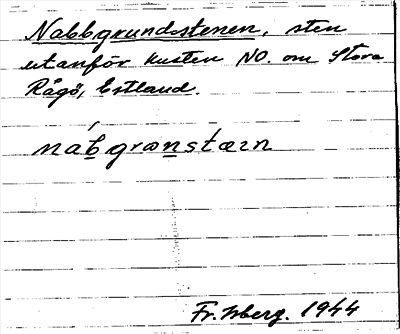 Nabbgrundsstenen, sten
utanför kusten NO. om Stora
Rågö, Estland.
náb̲græn̲stæın
Fr. Isberg. 1944